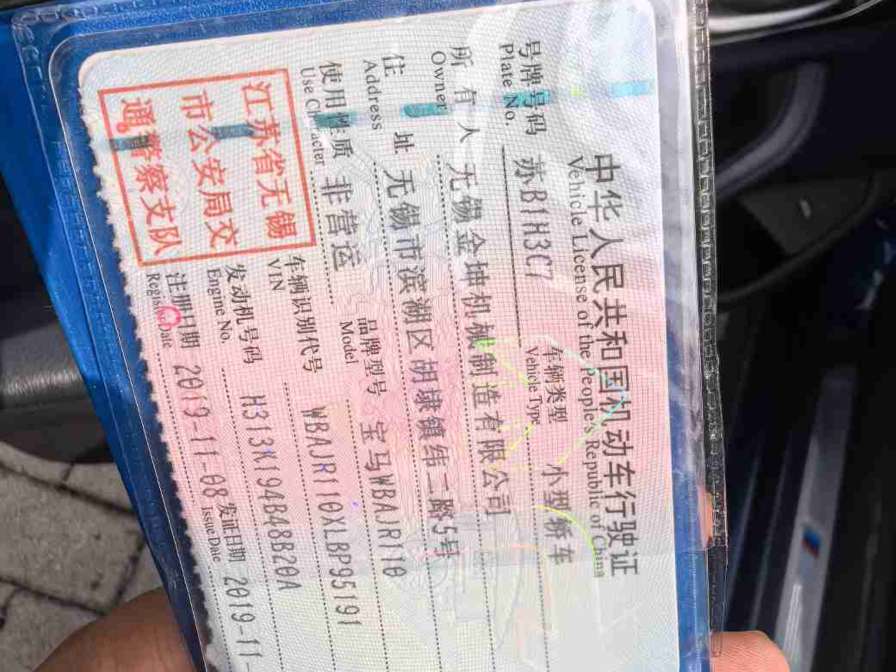 中华人民共和国机动车行驶证
Vehicle License of the People's Republic of China
号牌号码 苏B1H3C7 车辆类型 小型轿车
Plate No. Vehicle Type
所有人 无锡金坤机械制造有限公司
Owner
住址 无锡市滨湖区胡埭镇纬二路5号
Address
使用性质 非营运 品牌型号 宝马WBAJR110
Use Character Model
江苏省无锡
市公安局交
通警察支队
车辆识别代号 WBAJR110XLBP95191
VIN
发动机号码 H313K194B48B20A
Engine No.
注册日期 2019-11-08 发证日期 2019-11-
Register Date Issue Date